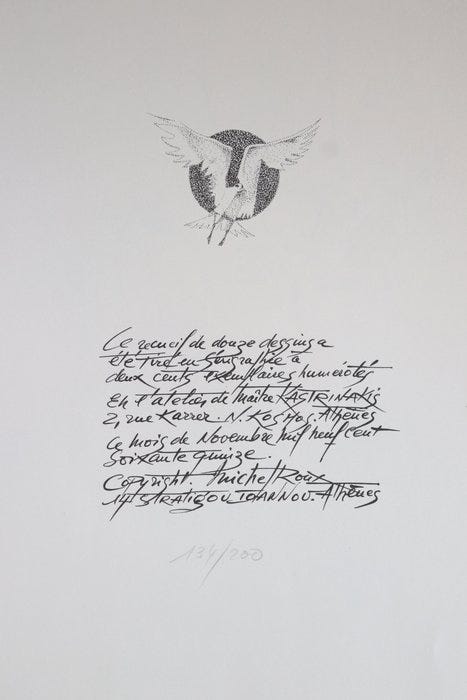 Ce recueil de douze dessins a
été tiré en sérigraphie à
deux cents exemplaires numérotés
en l'atelier de Maître KASTRINAKIS
2, rue Karrer. N. KOSMOS. Athènes
ce mois de Novembre mil neuf cent
soixante quinze.
Copyright. Michel Roux
14 STRATIGOU IOANNOU. Athènes
134/200